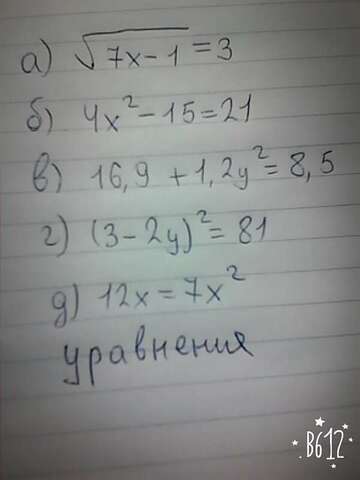 а) √7x-1 = 3
б) 4x² - 15 = 21
в) 16,9 + 1,2y² = 8,5
г) (3 - 2y)² = 81
д) 12x = 7x²
уравнения
B612